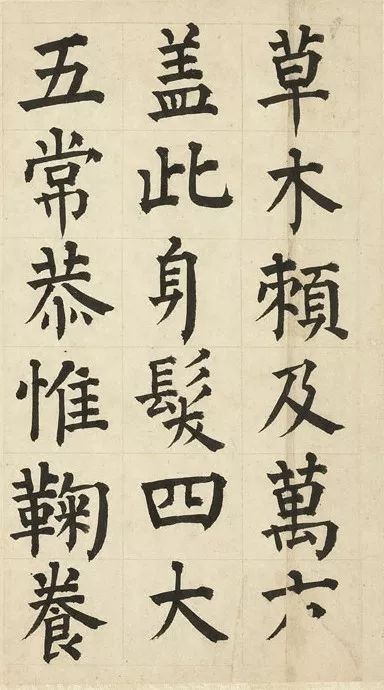 草木頼及萬方
盖此身髮四大
五常恭惟鞠養